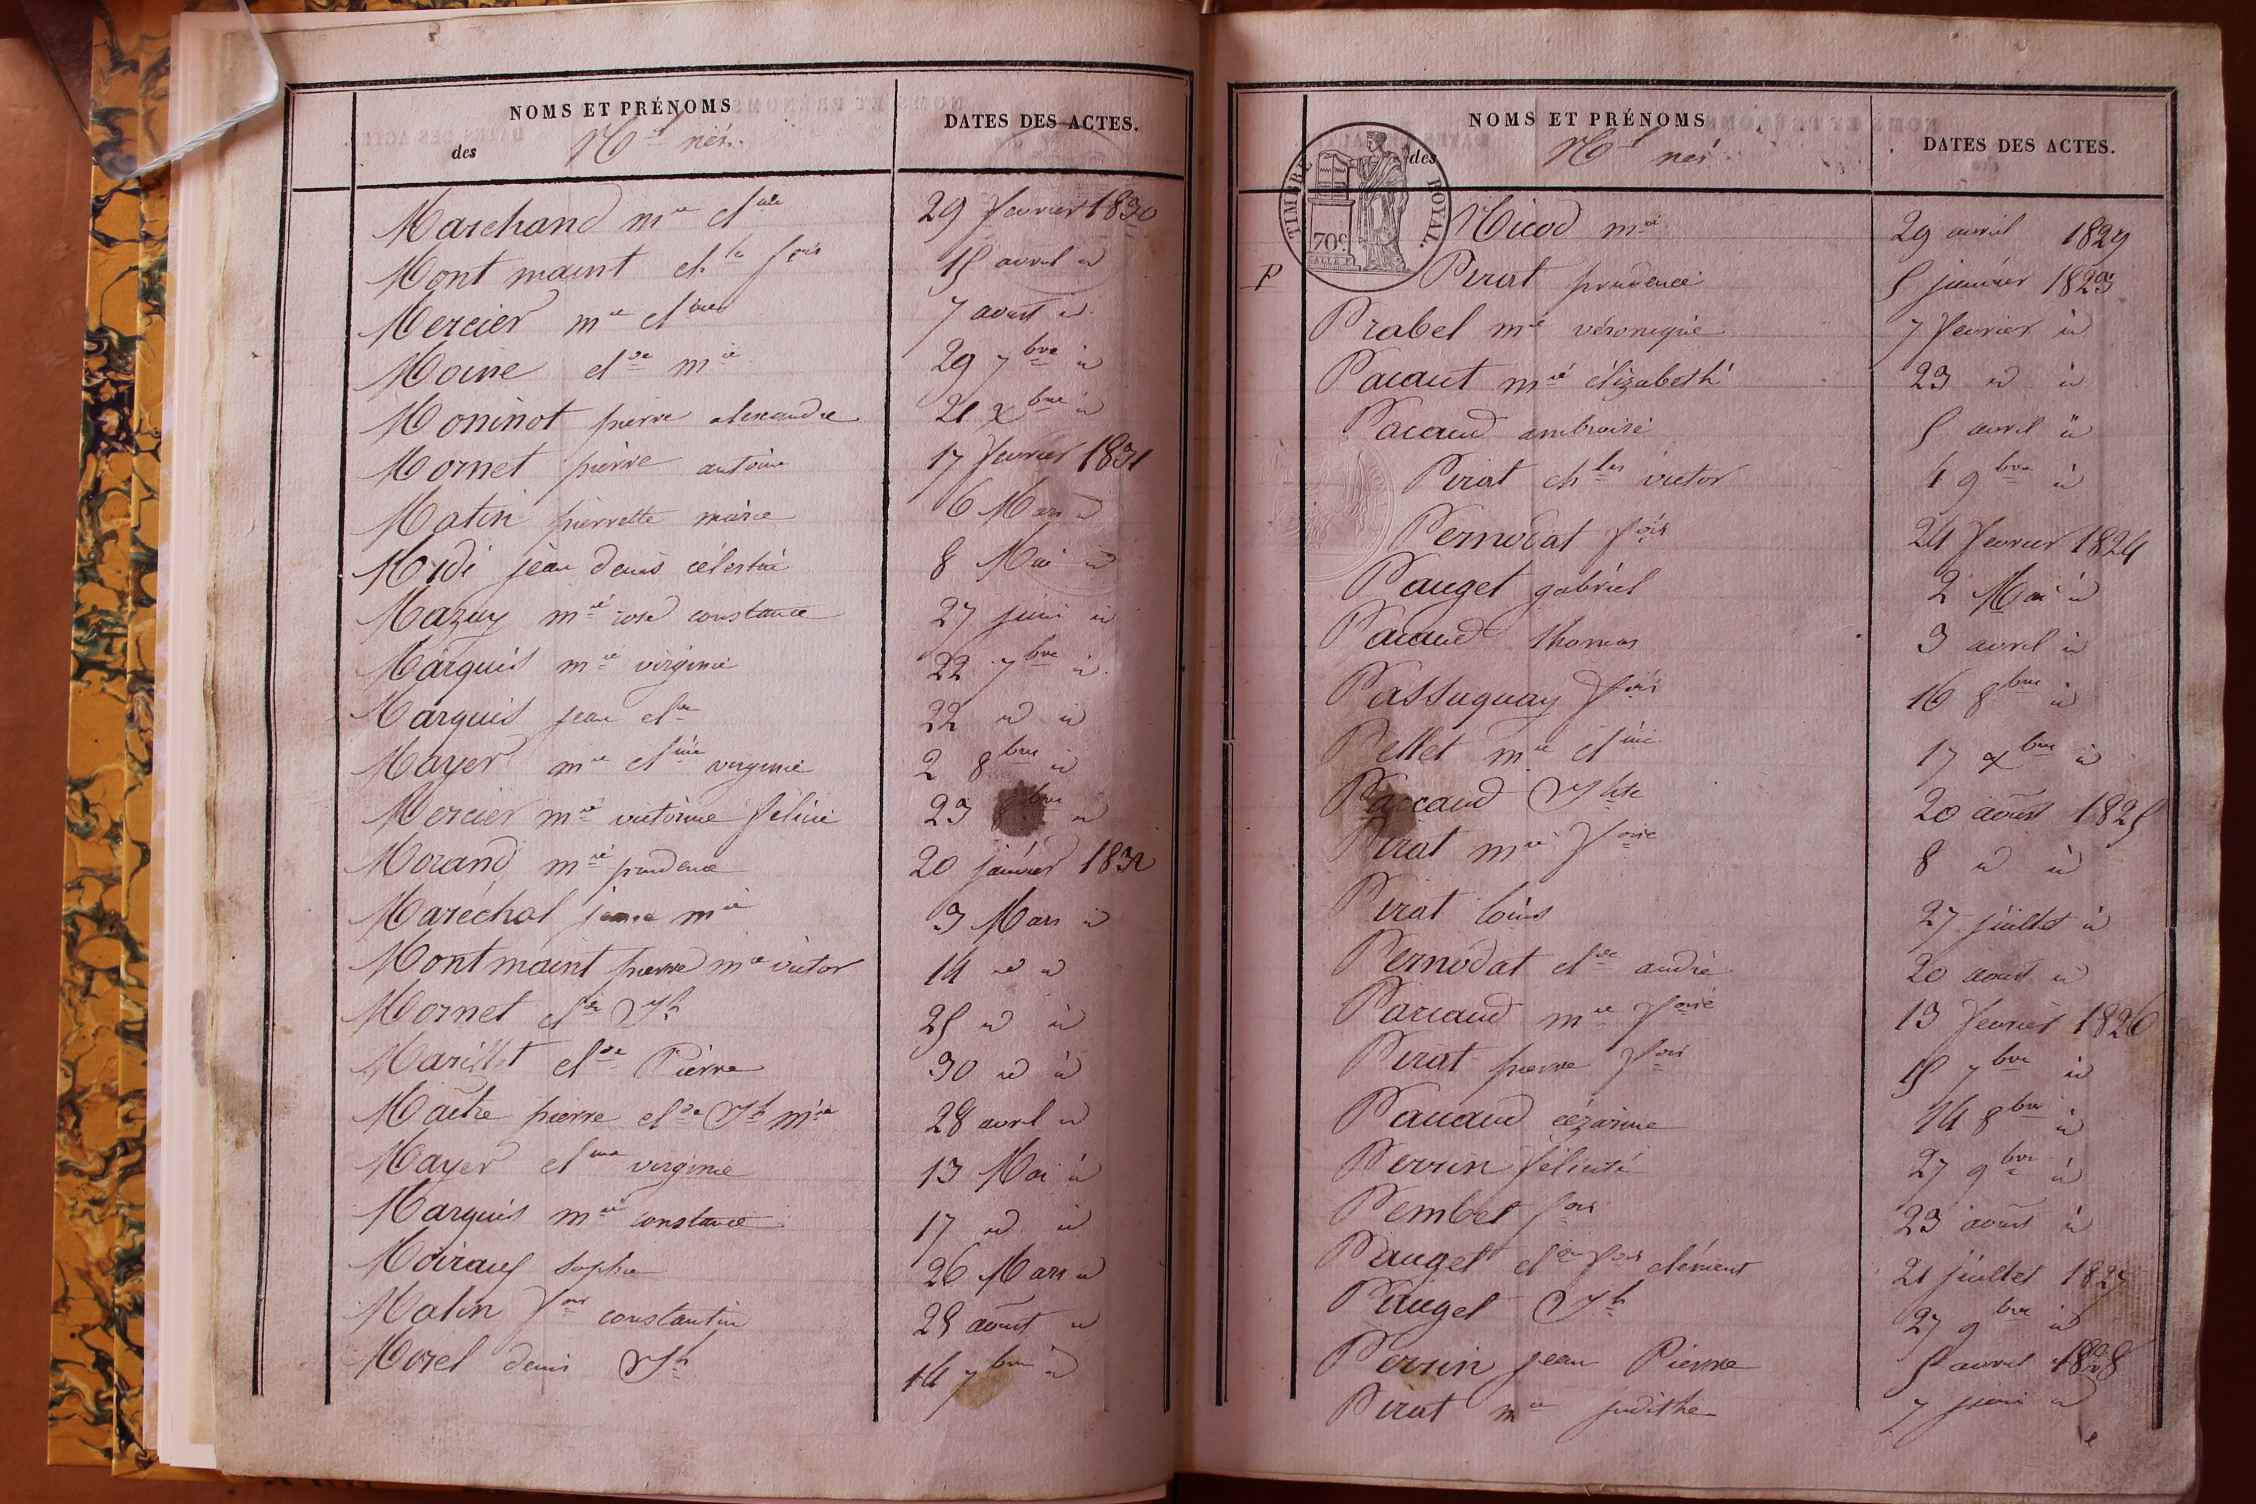 NOMS ET PRÉNOMS
des N.d nés.
DATES DES ACTES.
Marchand m.ie cl.ude 29 fevrier 1830
Montmaint ch.les f.ois 15 avril id
Mercier m.ie cl.ine 7 aout id
Moine cl.de m.ie 29 7bre id
Moninot pierre alexandre 21 xbre id
Mornet pierre antoine 17 fevrier 1831
Matin pierrette marie 6 Mars id
Midi jean denis célestin 8 Mai id
Mazuy m.ie rose constance 27 juin id
Marquis m.ie virginie 22 7bre id
Marquis jean cl.de 22 id id
Mayer m.ie cl.ine virginie 2 8bre id
Mercier m.ie victorine félicie 23 8bre id
Morand m.ie prudence 20 janvier 1832
Maréchal m.ie 3 Mars id
Montmaint pierre m.ie victor 14 id id
Mornet cl.de J.h 25 id id
Marillet cl.de Pierre 30 id id
Maitre pierre cl.de J.h m.ie 28 avril id
Mayer cl.ine virginie 13 Mai id
Marquis m.ie constance 17 id id
Moiraux sophie 26 Mars id
Matin f.ois constantin 25 aout id
Morel denis J.h 14 7bre id
NOMS ET PRÉNOMS
des N.d nés
DATES DES ACTES.
TIMBRE ROYAL.
70c
Nicod m.ie 29 avril 1829
P Pirat prudence 5 janvier 1823
Prabel m.ie véronique 7 fevrier id
Pacaut m.ie élizabeth 23 id id
Pacaud ambroise 5 avril id
Pirat ch.les victor 4 9bre id
Pernodat f.ois 24 fevrier 1824
Pauget gabriel 2 Mai id
Pacaud thomas 3 avril id
Passaquay f.ois 16 8bre id
Pellet m.ie cl.ine 17 xbre id
Paccaud J.hte 20 aout 1825
Pirat m.ie f.oise 8 id id
Pirat louis 27 juillet id
Pernodat cl.de andré 20 aout id
Paccaud m.ie f.oise 13 fevrier 1826
Pirat pierre f.ois 15 7bre id
Pacaud cézarine 14 8bre id
Perrin félicité 27 9bre id
Pembet f.ois 23 aout id
Pauget cl.de f.ois clément 21 juillet 1827
Pauget J.h 27 9bre id
Perrin jean Pierre 5 avril 1828
Pirat m.ie judithe 7 juin id